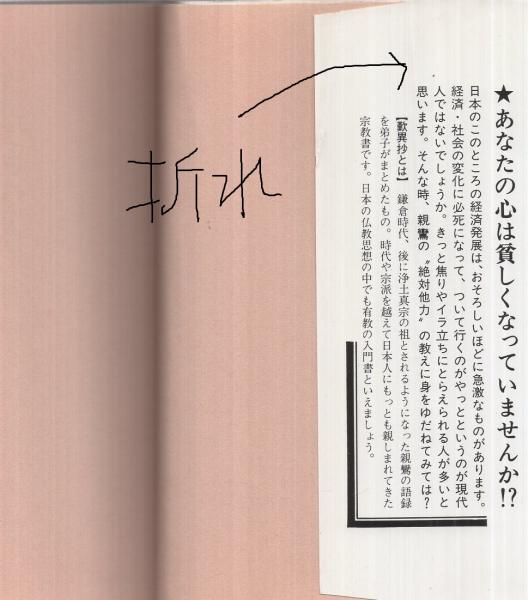 ★あなたの心は貧しくなっていませんか!?
日本のこのところの経済発展は、おそろしいほどに急激なものがあります。
経済・社会の変化に必死になって、ついて行くのがやっとというのが現代
人ではないでしょうか。きっと焦りやイラ立ちにとらえられる人が多いと
思います。そんな時、親鸞の〝絶対他力〟の教えに身をゆだねてみては?
【歎異抄とは】 鎌倉時代、後に浄土真宗の祖とされるようになった親鸞の語録
を弟子がまとめたもの。時代や宗派を越えて日本人にもっとも親しまれてきた
宗教書です。日本の仏教思想の中でも有数の入門書といえましょう。
折れ